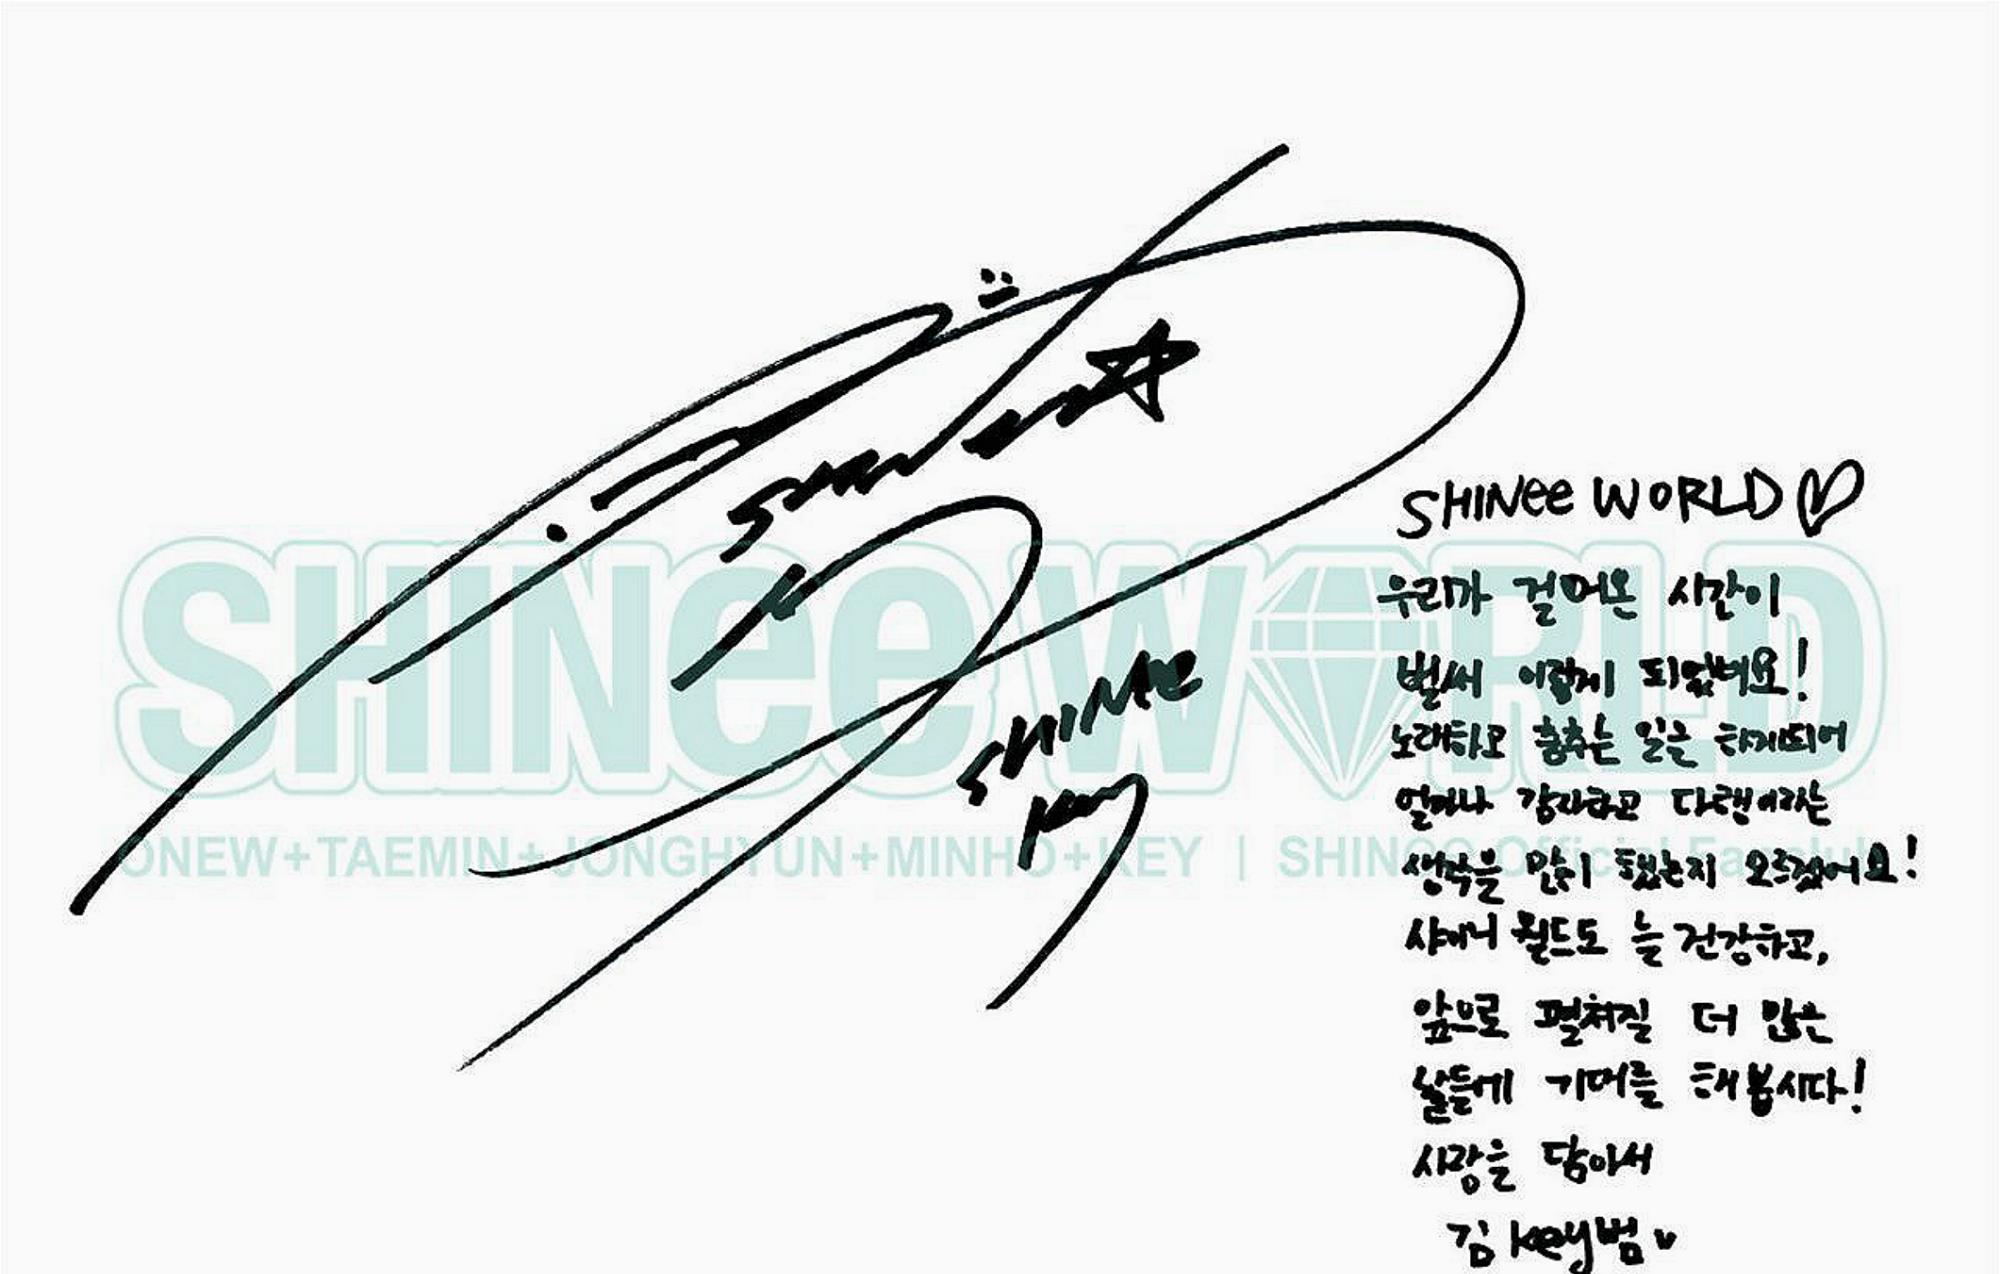 SHINee WORLD♡
우리가 걸어온 시간이
벌써 이렇게 되었네요!
노래하고 춤추는 일을 하게되어
얼마나 감사하고 다행이라는
생각을 많이 했는지 모르겠어요!
샤이니 월드도 늘 건강하고,
앞으로 펼쳐질 더 많은
날들에 기대를 해봅시다!
사랑을 담아서
김 key범
SHINee
Key
SHINee WORLD
ONEW+TAEMIN+JONGHYUN+MINHO+KEY | SHINee Official Fanclub